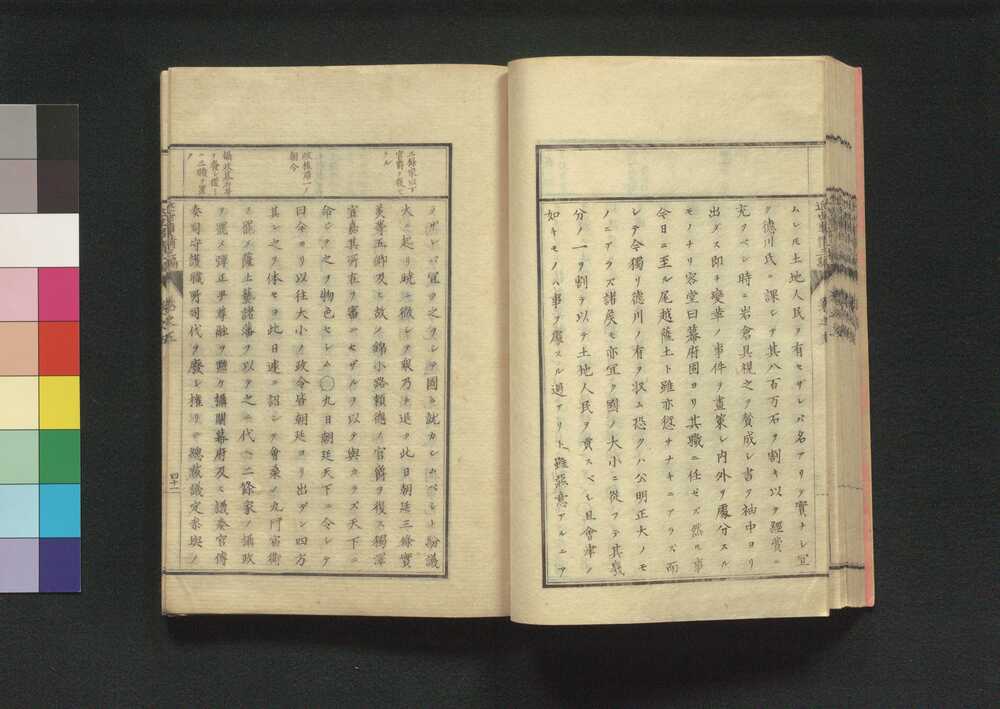 ムレ𪜈土地人民ヲ有セザレバ名アリテ實ナシ宜
ク德川氏ニ課シテ其八百万石ヲ割キ以テ經費ニ
充ツベシ時ニ岩倉具視之ヲ賛成シ書ヲ袖中ヨリ
出ダス即チ變革ノ事件ヲ畫策シ内外ヲ處分スル
モノナリ容堂曰幕府固ヨリ其職ニ任ゼズ然𪜈事
今日ニ至ル尾越薩土ト雖亦愆ナキニアラズ而
シテ今獨リ德川ノ有ヲ収ム恐クハ公明正大ノモ
ノニアラズ諸矦モ亦宜ク國ノ大小ニ從フテ其幾
分ノ一ヲ割テ以テ土地人民ヲ貢スベシ且會津ノ
如キモノハ事ヲ處スル過アリト雖惡意アルニア
三條家以下
官爵ヲ復ス
ル
政権第一ノ
朝令
攝政幕府等
ヲ廢シ僅ニ
二職ヲ置
ク
ラザレバ宜ク之ヲシテ國ニ就カシムベシト紛議
大ニ起リ曉ニ徹シテ衆乃チ退ク此日朝廷三條實
美等五卿及ヒ故ノ錦小路賴德ノ官爵ヲ復ス獨澤
宣嘉其所在ヲ審ニセザルヲ以テ與カラズ天下ニ
命シテ之ヲ物色セシム〇九日朝廷天下ニ令シテ
曰今ヨリ以往大小ノ政令皆朝廷ヨリ出ダシ四方
其レ之ヲ体セヨ此日遽ニ詔シテ會桒ノ九門宿衛
ヲ罷メ薩土藝諸藩ヲ以テ之ニ代ヘ二條家ノ攝政
ヲ罷メ彈正尹尊融ヲ黜ケ攝關幕府及ヒ議奏官傳
奏司守護職所司代ヲ廢シ權リニ總裁議定参與ノ
四十一